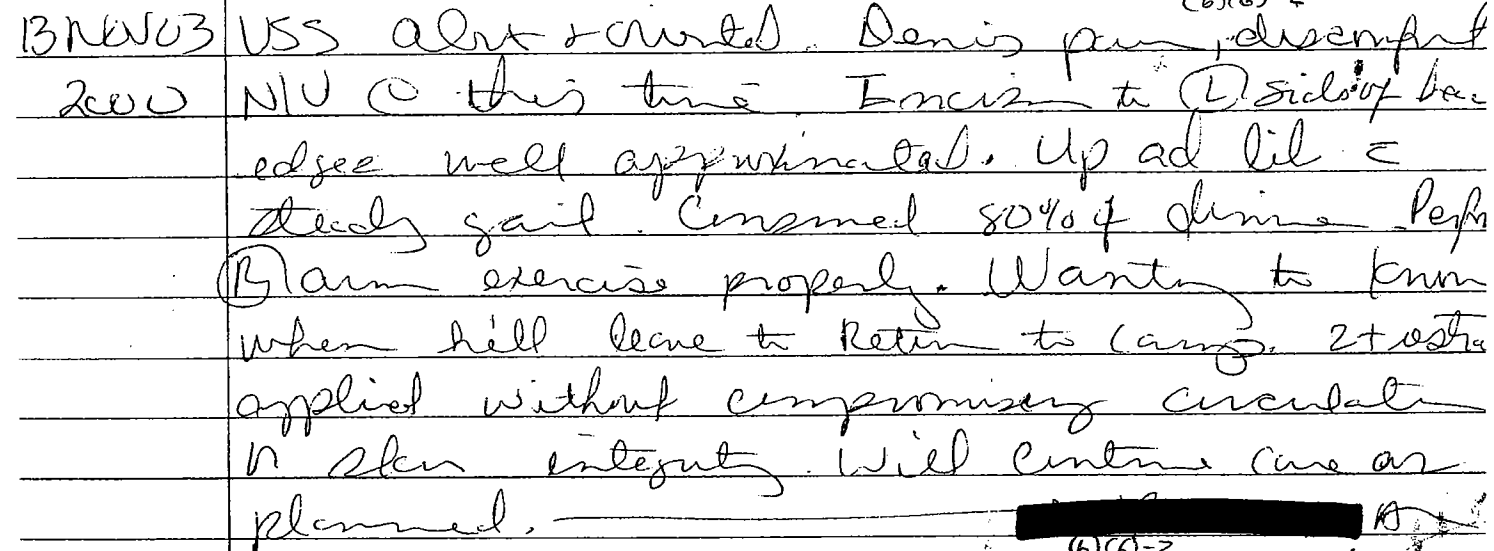 (b)(6)-2
13NOV03 VSS alert + oriented. Denies pain, discomfort
2000 N/V @ this time. Incision to (L) side of bac
edges well approximated. Up ad lib c
steady gait. Consumed 80% of dinner. Perfo
(R) arm exercise properly. Wanting to know
when he'll leave to Return to Camp. 2 pt restra
applied without compromising circulation
or skin integrity. Will continue care as
planned.
(b)(6)-2